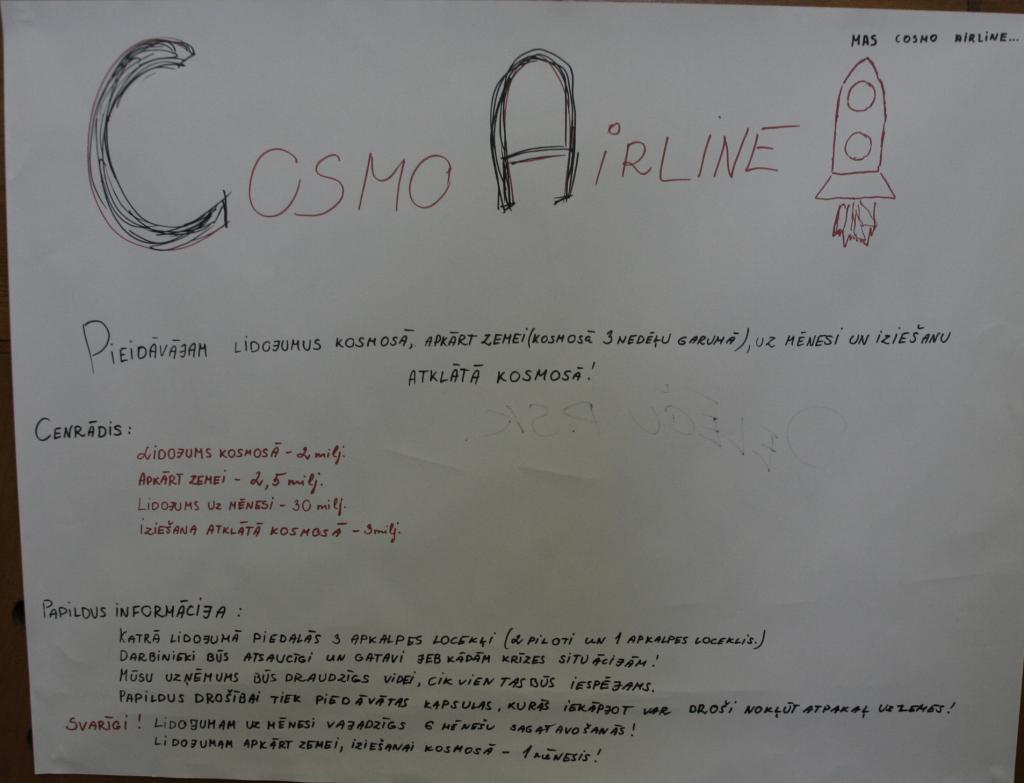 MAS COSMO AIRLINE...
COSMO AIRLINE
PIEIDĀVĀJAM LIDOJUMUS KOSMOSĀ, APKĀRT ZEMEI (KOSMOSĀ 3 NEDĒĻU GARUMĀ), UZ MĒNESI UN IZIEŠANU
ATKLĀTĀ KOSMOSĀ!
CENRĀDIS:
LIDOJUMS KOSMOSĀ - 2 milj.
APKĀRT ZEMEI - 2,5 milj.
LIDOJUMS UZ MĒNESI - 30 milj.
IZIEŠANA ATKLĀTĀ KOSMOSĀ - 3 milj.
PAPILDUS INFORMĀCIJA:
KATRĀ LIDOJUMĀ PIEDALĀS 3 APKALPES LOCEKĻI (2 PILOTI UN 1 APKALPES LOCEKLIS.)
DARBINIEKI BŪS ATSAUCĪGI UN GATAVI JEB KĀDĀM KRĪZES SITUĀCIJĀM!
MŪSU UZŅĒMUMS BŪS DRAUDZĪGS VIDEI, CIK VIEN TAS BŪS IESPĒJAMS.
PAPILDUS DROŠĪBAI TIEK PIEDĀVĀTAS KAPSULAS, KURĀS IEKĀPJOT VAR DROŠI NOKĻŪT ATPAKAĻ UZ ZEMES!
SVARĪGI! LIDOJUMAM UZ MĒNESI VAJADZĪGS 6 MĒNEŠU SAGATAVOŠANĀS!
LIDOJUMAM APKĀRT ZEMEI, IZIEŠANAI KOSMOSĀ - 1 MĒNESIS!